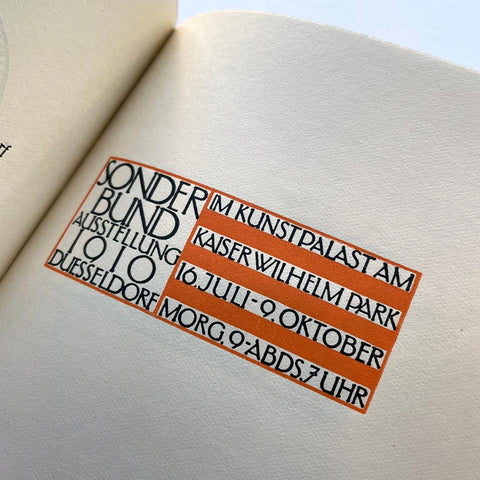 SONDER
BUND
AUSSTELLUNG
1910
DUESSELDORF
IM KUNSTPALAST AM
KAISER WILHELM PARK
16. JULI - 9. OKTOBER
MORG. 9-ABDS. 7 UHR